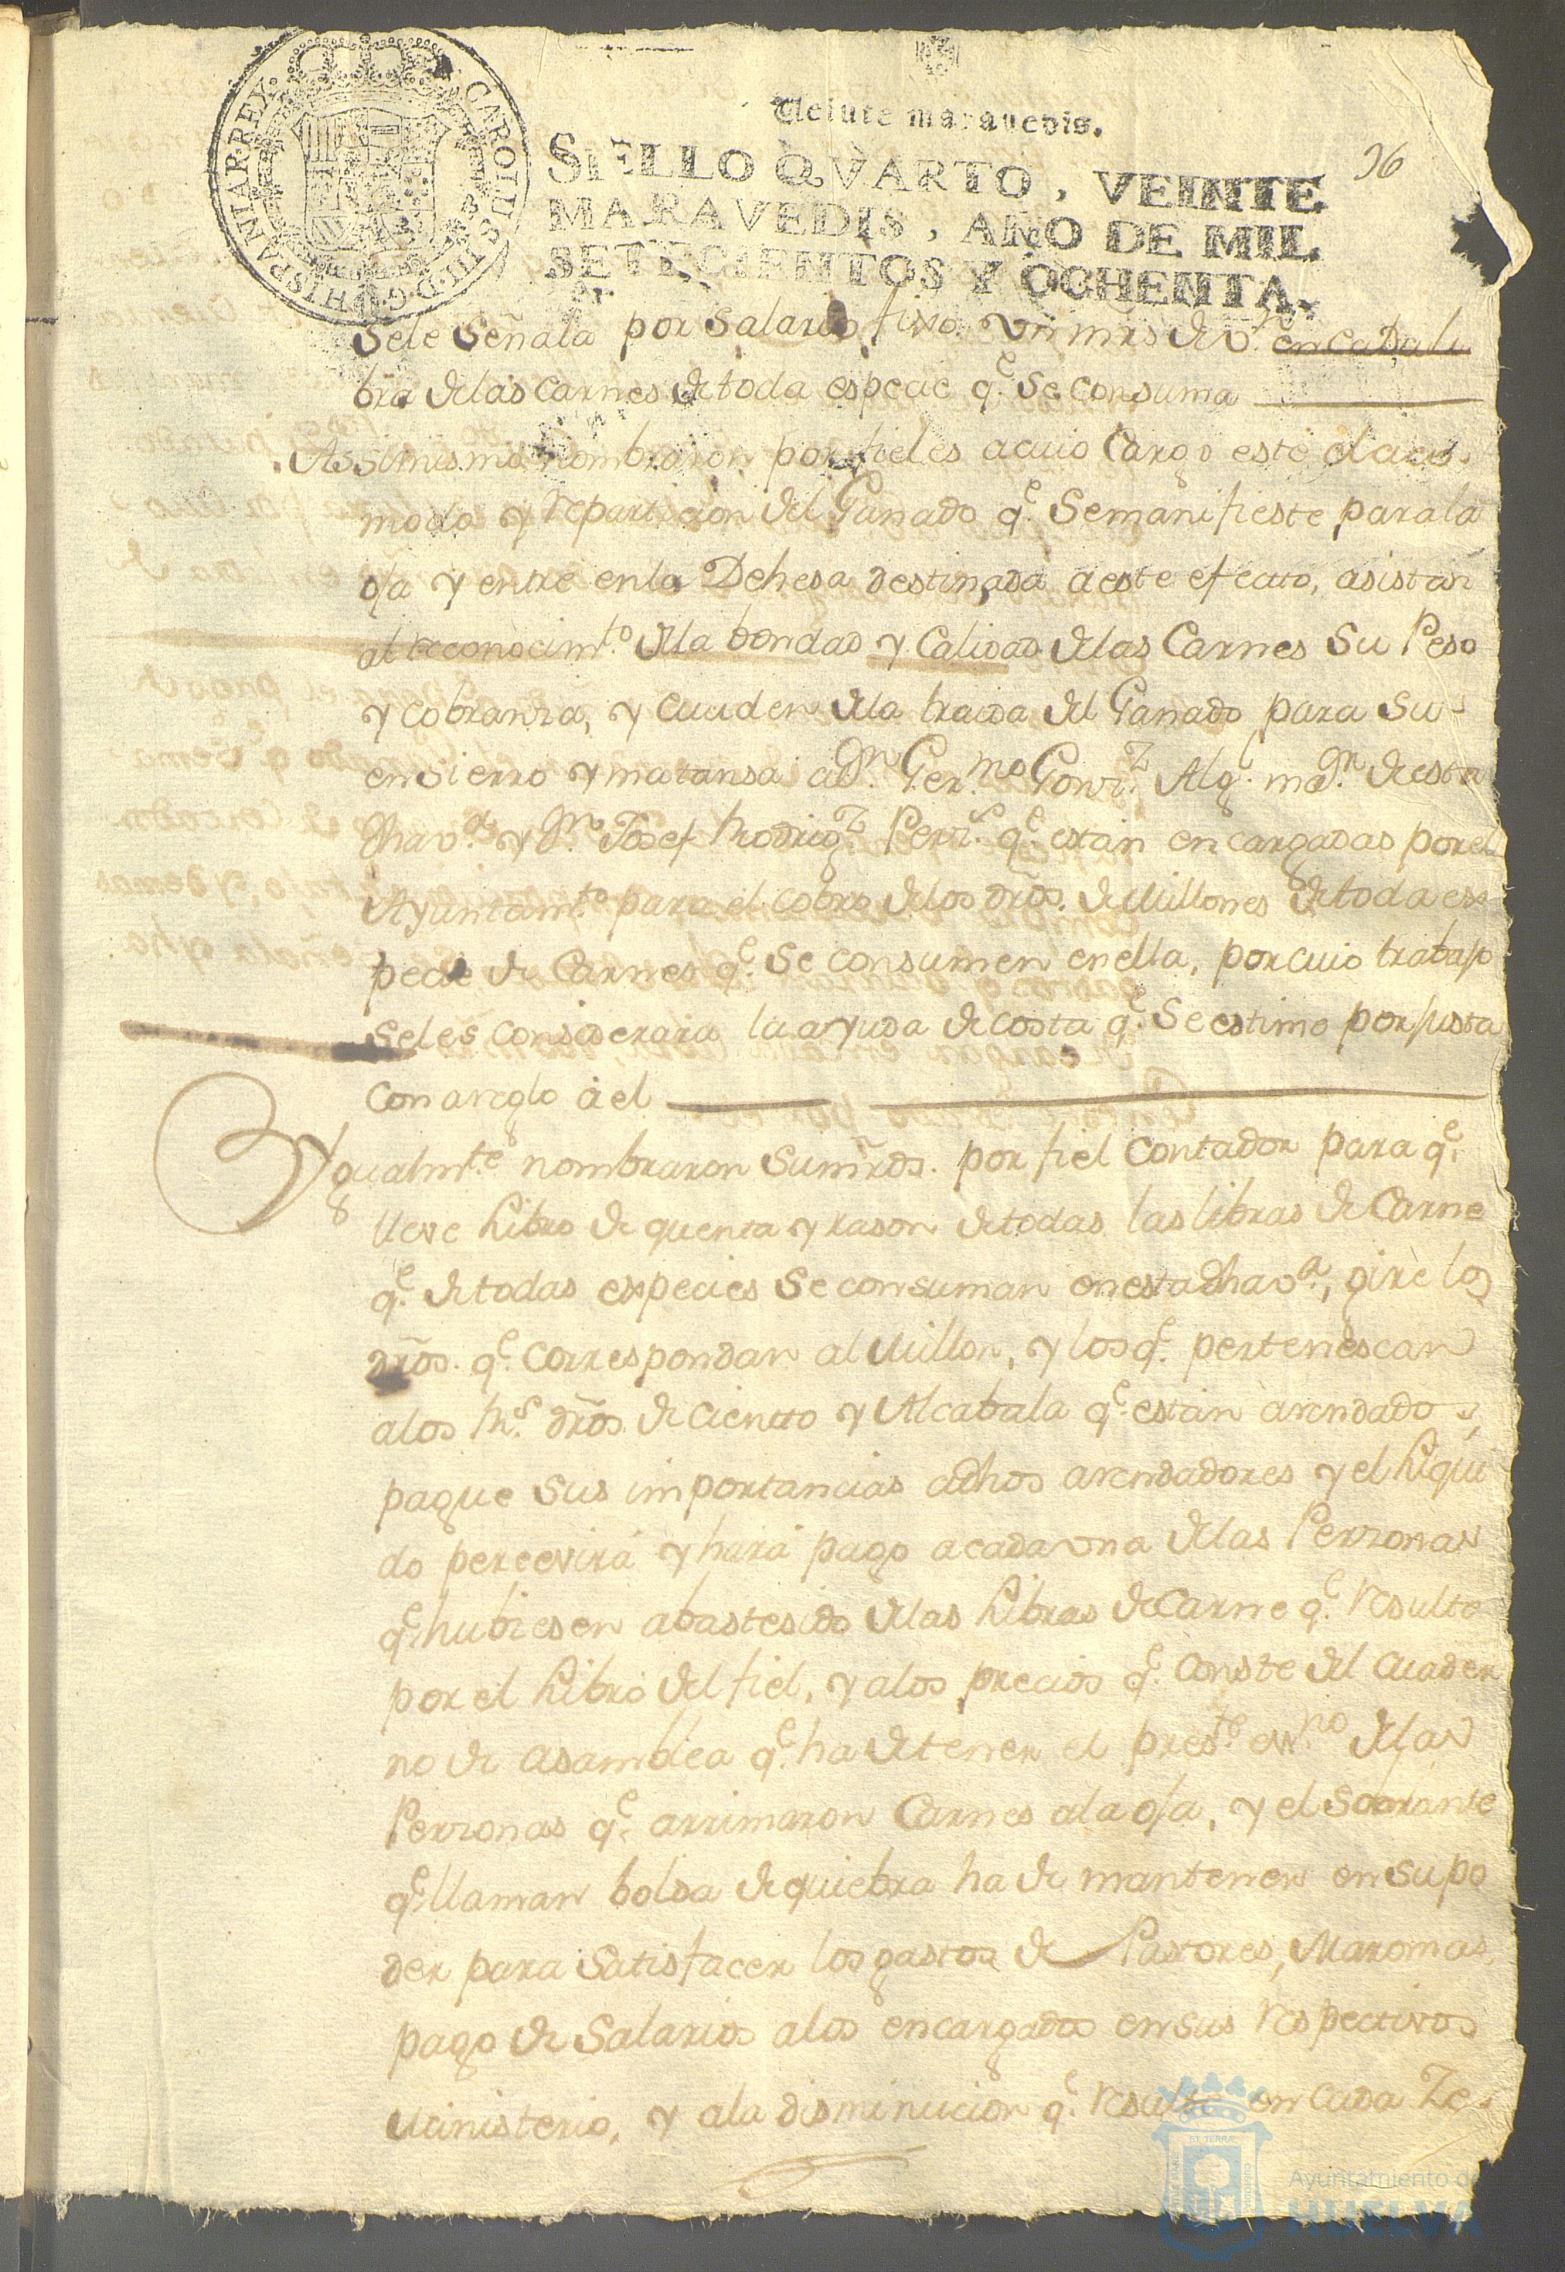 CAROLUS III D.G. HISPANIAR. REX.
Veinte maravedis.
96
SELLO QVARTO, VEINTE
MARAVEDIS, AÑO DE MIL
SETECIENTOS Y OCHENTA.
Sele Señala por Salario fixo Un mrs de vn. en cada li
bra delas carnes de toda especie q.e Se consuma
Assimismo nombraron por fieles acuio Cargo esté el aco-
modo y reparticion del Ganado q.e Se manifieste para la
oja y entre enla Dehesa destinada aeste efecto, asistan
al reconocim.to dela bondad y Calidad delas Carnes Su Peso
y cobranza, y cuiden dela traida del Ganado para Su
ensierro y matansa a Dn. Ger.mo Gonz.z Alg.l mor. de esta
dha v.a y Dn. Josef Rodrig.z q.e estan encargadas por el
Ayuntam.to para el cobro delos dros. de Millones de toda es-
pecie de Carnes q.e Se consumen en ella, por cuio trabajo
Seles considerara la ayuda de costa q.e Se estime por justa
con areglo a el
Ygualm.te nombraron Sumrds. por fiel Contador para q.e
lleve Libro de quenta y rason de todas las libras de Carne
q.e de todas especies Se consuman en esta dha v.a, gire los
dros. q.e correspondan al Millon, y los q.e pertenescan
alos R.s dros. de Ciento y Alcabala q.e estan arendados,
pague Sus importancias adhos arendadores y el Liqui
do percevirá y hará pago acada una delas Perzonas
q.e hubiesen abastesido delas Libras de Carne q.e resulte
por el Libro del fiel, y alos precios q.e conste del cuader
no de asamblea q.e ha de tener el pres.te ess.no delas
Perzonas q.e arrimaron Carnes ala oja, y el Sobrante
q.e llaman bolsa de quiebra ha de mantener en su po
der para Satisfacer los gastos de Pastores, Maromas,
pago de Salarios alos encargados en sus respectivos
Ministerio, y ala disminucion q.e resulte en cada Ze-
Ayuntamiento de
HUELVA